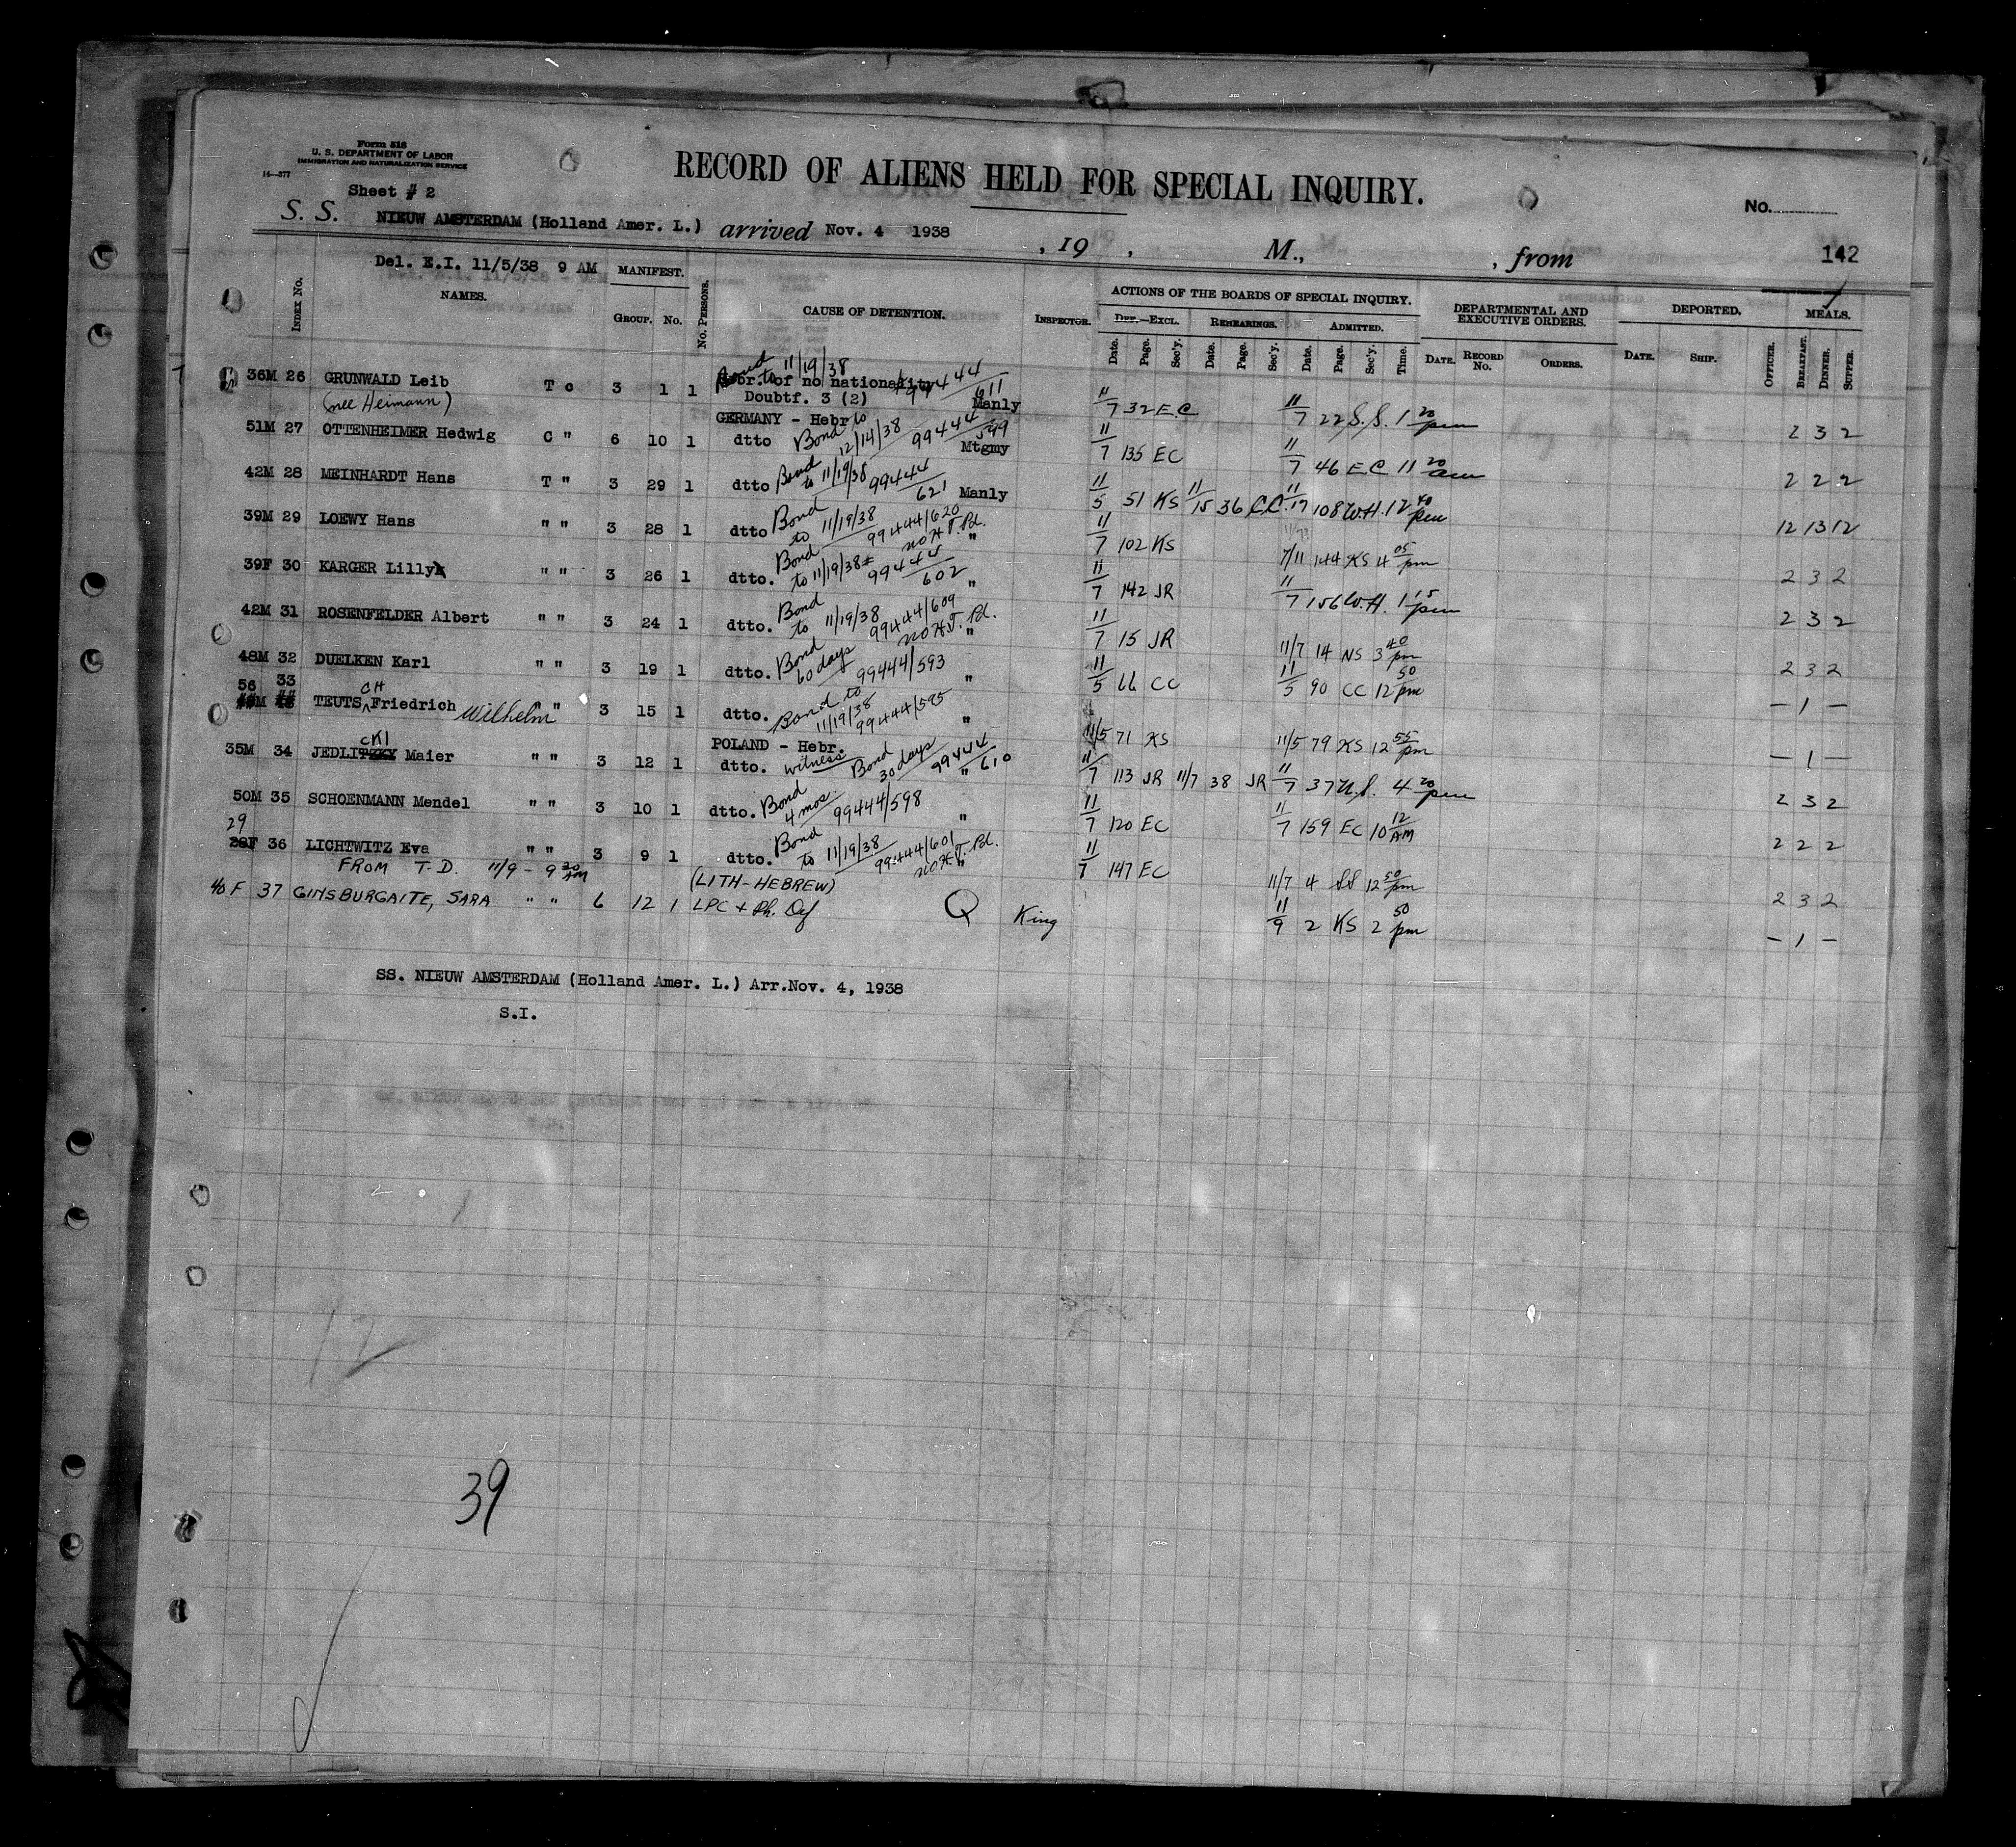 Form 518
U. S. DEPARTMENT OF LABOR
IMMIGRATION AND NATURALIZATION SERVICE
14—377
RECORD OF ALIENS HELD FOR SPECIAL INQUIRY.
Sheet # 2
No.
S. S. NIEUW AMSTERDAM (Holland Amer. L.) arrived Nov. 4 1938 , 19 , M., , from
142
Del. E.I. 11/5/38 9 AM
INDEX No. NAMES. MANIFEST. GROUP. No. No. PERSONS. CAUSE OF DETENTION. INSPECTOR. ACTIONS OF THE BOARDS OF SPECIAL INQUIRY. DEPARTMENTAL AND EXECUTIVE ORDERS. DEPORTED. MEALS.
DEF.—EXCL. REHEARINGS. ADMITTED.
Date. Page. Sec'y. Date. Page. Sec'y. Date. Page. Sec'y. Time. DATE. RECORD No. ORDERS. DATE. SHIP. OFFICER. BREAKFAST. DINNER. SUPPER.
Bond to 11/19/38
36M 26 GRUNWALD Leib T c 3 1 1 Hebr. of no nationality 99444/611
Doubtf. 3 (2) Manly 11/7 32 E.C 11/7 22 S.S. 1 20 pm 2 3 2
(nee Heimann)
GERMANY - Hebr.
51M 27 OTTENHEIMER Hedwig C " 6 10 1 dtto Bond to 12/14/38 99444/549 Mtgmy 11/7 135 EC 11/7 46 E.C 11 20 am 2 2 2
42M 28 MEINHARDT Hans T " 3 29 1 dtto Bond to 11/19/38 99444/621 Manly 11/5 51 KS 11/15 36 CC 11/17 108 W.H. 12 40 pm 12 13 12
39M 29 LOEWY Hans " " 3 28 1 dtto Bond to 11/19/38 99444/620 no H.T. Pd. " 11/7 102 KS 7/11 144 KS 4 05 pm 2 3 2
39F 30 KARGER Lilly " " 3 26 1 dtto. Bond to 11/19/38 99444/602 " 11/7 142 JR 11/7 156 W.H. 1 15 pm 2 3 2
42M 31 ROSENFELDER Albert " " 3 24 1 dtto. Bond to 11/19/38 99444/609 no H.T. Pd. " 11/7 15 JR 11/7 14 NS 3 40 pm 2 3 2
48M 32 DUELKEN Karl " " 3 19 1 dtto. Bond 60 days 99444/593 " 11/5 66 CC 11/5 90 CC 12 50 pm - 1 -
56 33
CH
TEUTS Friedrich Wilhelm " " 3 15 1 dtto. Bond to 11/19/38 99444/595 " 11/5 71 KS 11/5 79 KS 12 55 pm - 1 -
POLAND - Hebr.
CKI
35M 34 JEDLITZKY Maier " " 3 12 1 dtto. witness Bond 30 days 99444/610 " 11/7 113 JR 11/7 38 JR 11/7 37 4 20 pm 2 3 2
50M 35 SCHOENMANN Mendel " " 3 10 1 dtto. Bond 4 mos. 99444/598 " 11/7 120 EC 11/7 159 EC 10 12 AM 2 2 2
29
28F 36 LICHTWITZ Eva " " 3 9 1 dtto. Bond to 11/19/38 99444/601 no H.T. Pd. " 11/7 147 EC 11/7 4 SS 12 50 pm 2 3 2
FROM T-D. 11/9 - 9 30 AM
(LITH-HEBREW)
40 F 37 GINSBURGAITE, SARA " " 6 12 1 LPC + Ph. Def Q King 11/9 2 KS 2 50 pm - 1 -
SS. NIEUW AMSTERDAM (Holland Amer. L.) Arr.Nov. 4, 1938
S.I.
12
39